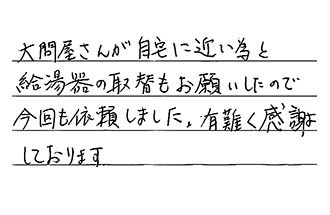 大問屋さんが自宅に近い為と
給湯器の取替もお願いしたので
今回も依頼しました。有難く感謝
しております